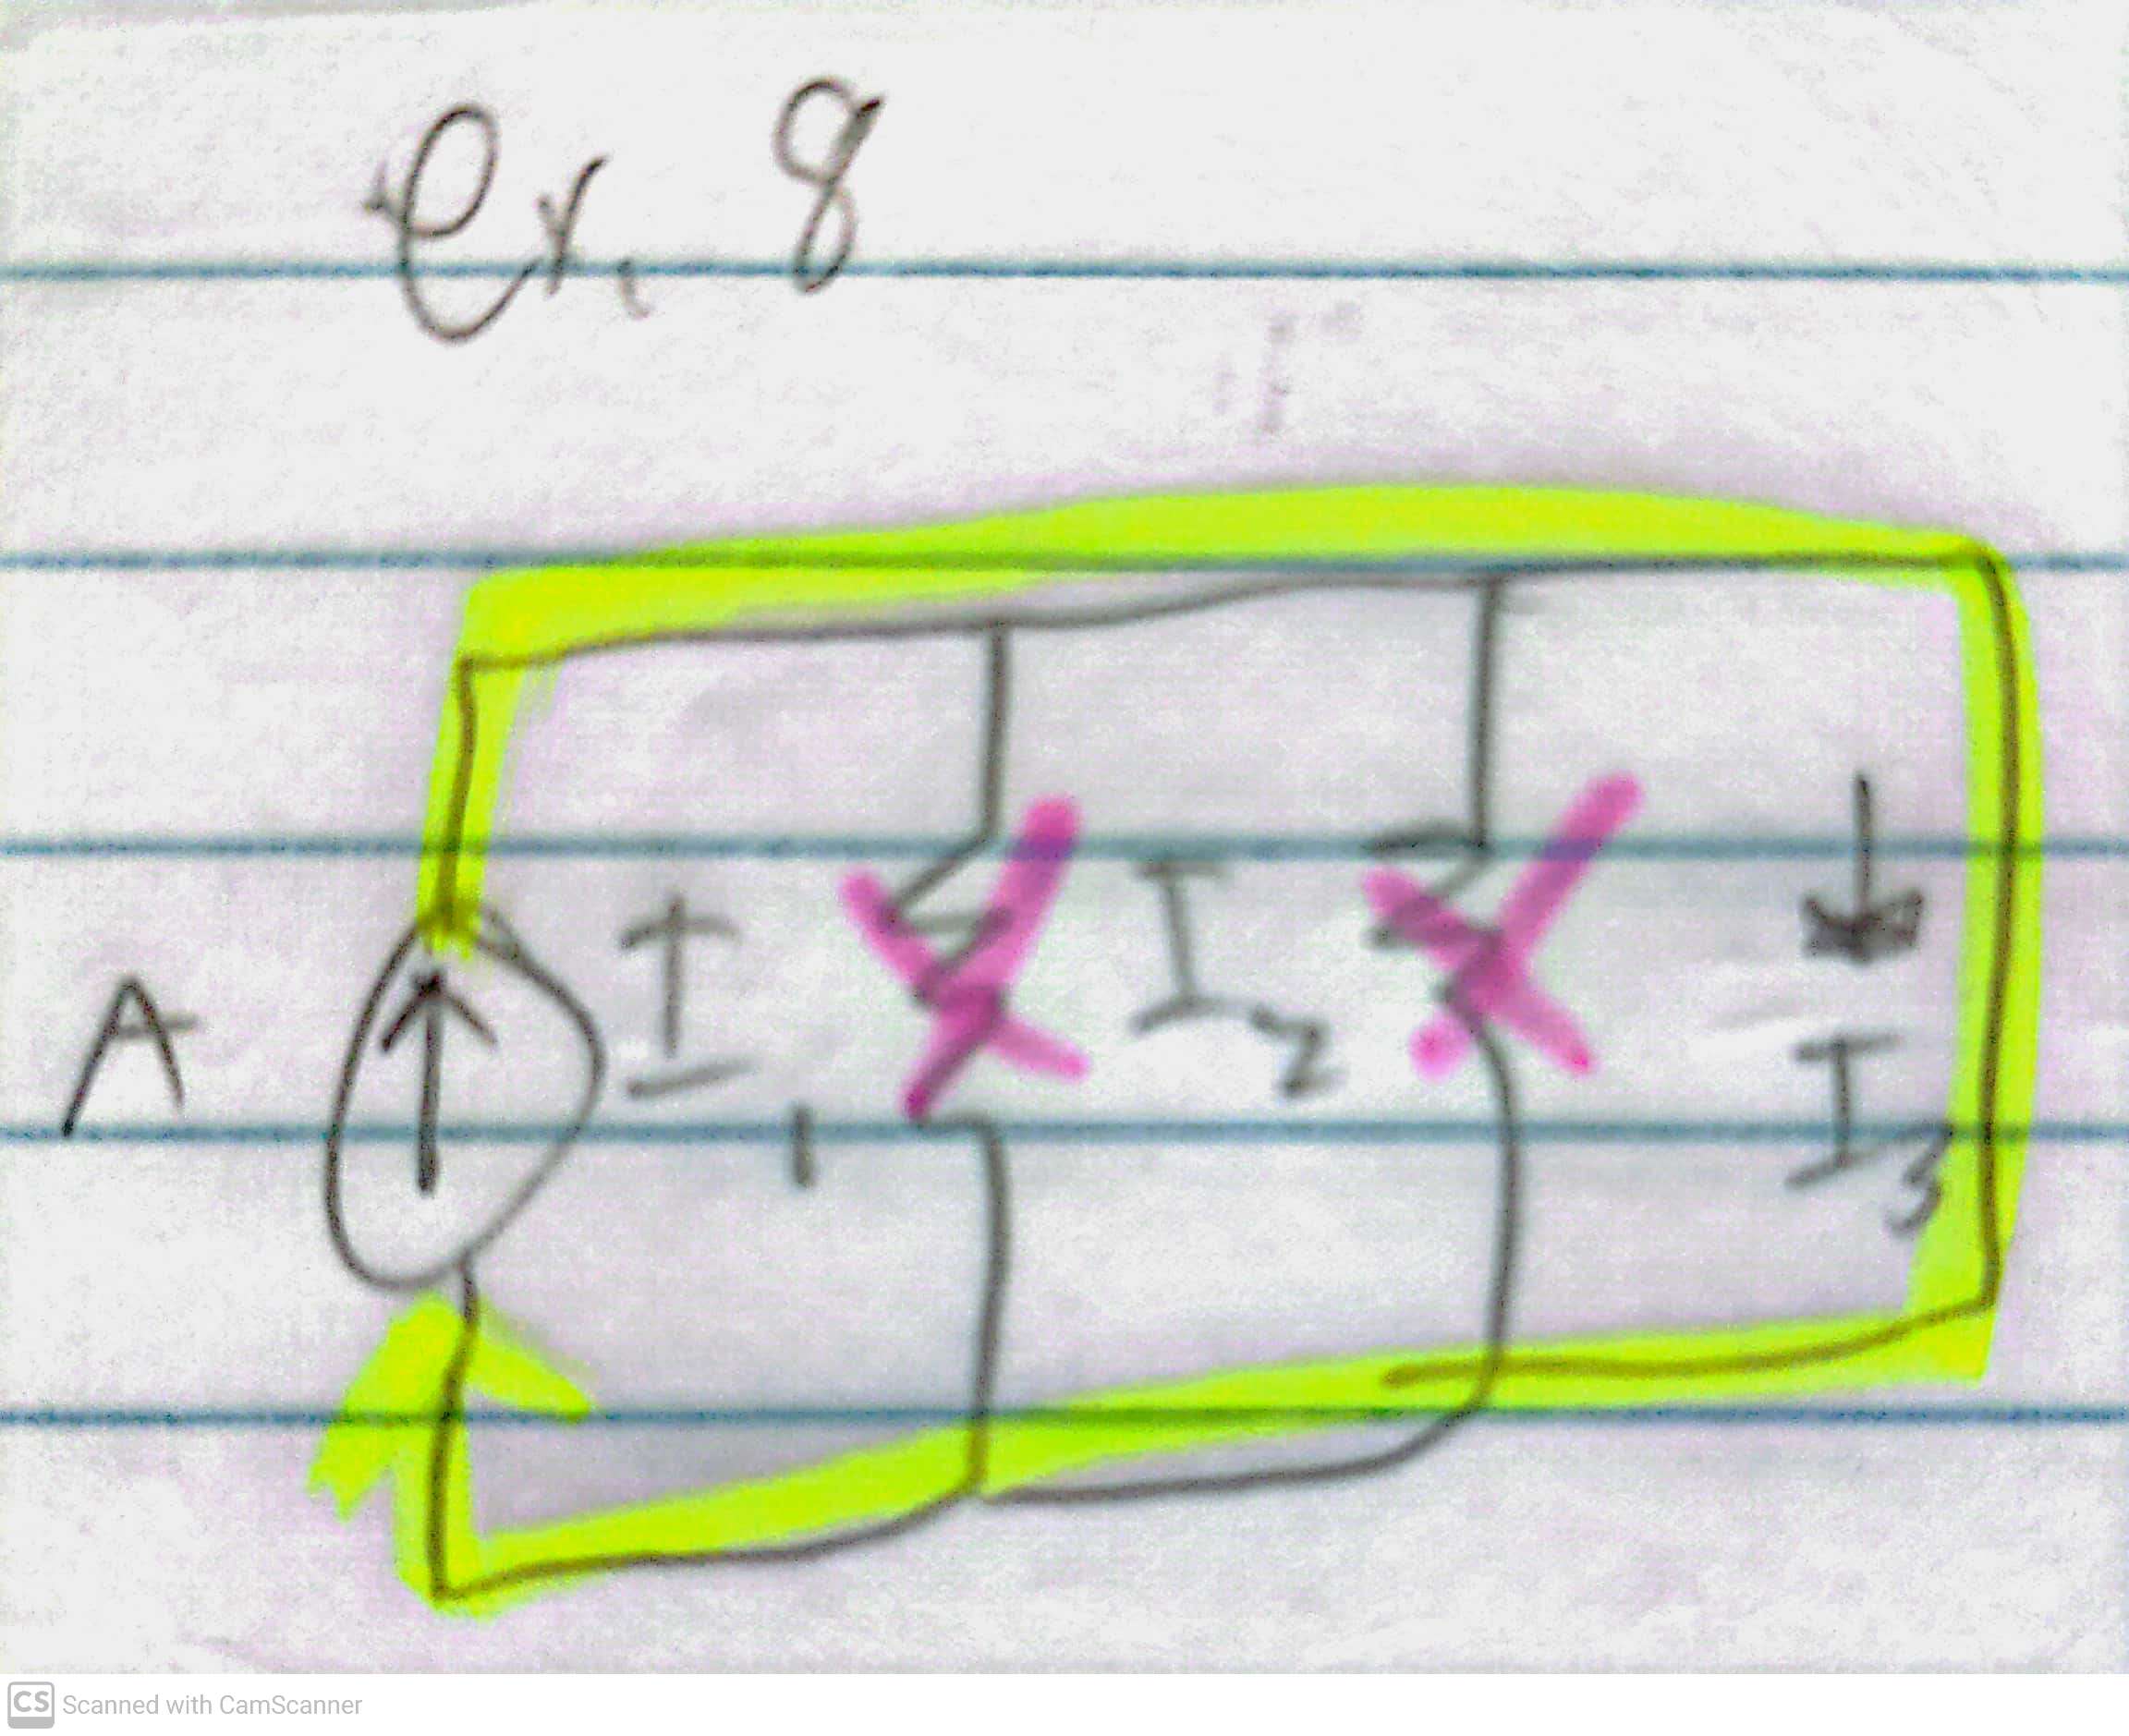 ex. 8
A I1 I2 I3
CS Scanned with CamScanner